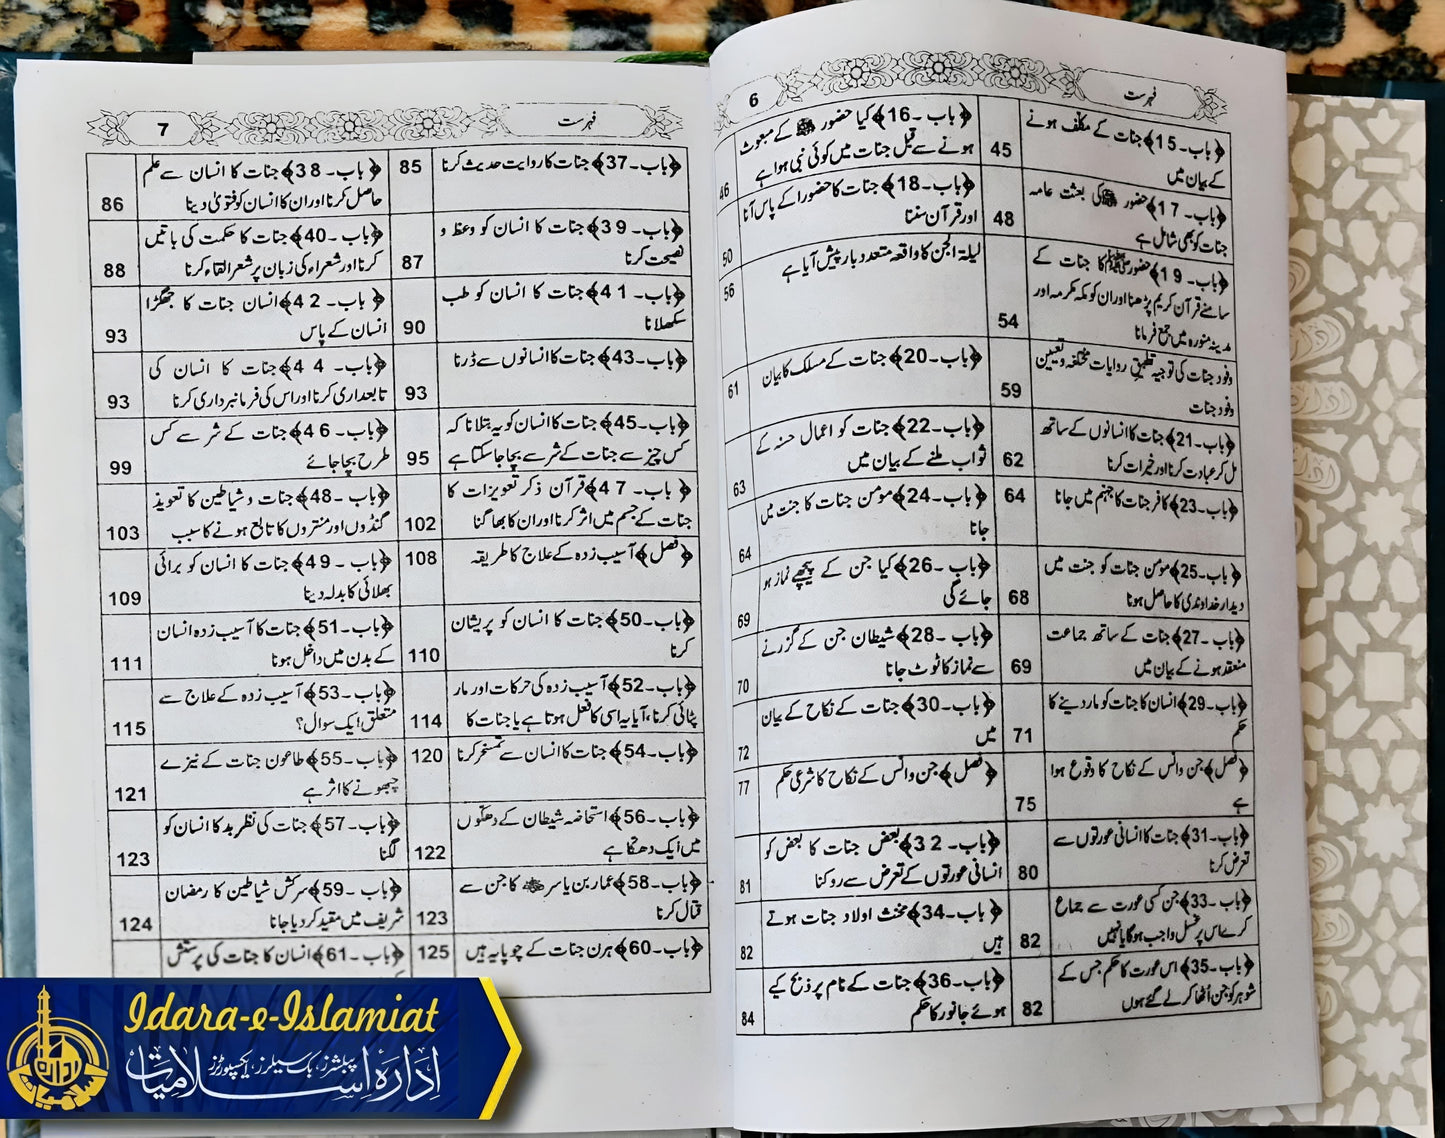 6
فہرست
﴿باب۔15﴾ جنات کے مکلف ہونے
کے بیان میں
45
﴿باب۔16﴾ کیا حضور ﷺ کے مبعوث
ہونے سے قبل جنات میں کوئی نبی ہوا ہے
46
﴿باب۔17﴾ حضور ﷺ کی بعثت عامہ
جنات کو بھی شامل ہے
48
﴿باب۔18﴾ جنات کا حضور کے پاس آنا
اور قرآن سننا
50
﴿باب۔19﴾ حضور ﷺ کا جنات کے
سامنے قرآن کریم پڑھنا اور ان کو مکہ مکرمہ اور
مدینہ منورہ میں جمع فرمانا
54
لیلۃ الجن کا واقعہ متعدد بار پیش آیا ہے
56
وفود جنات کی توجیہ تطبیق روایات مختلفہ و تعیین
وفود جنات
59
﴿باب۔20﴾ جنات کے مسلک کا بیان
61
﴿باب۔21﴾ جنات کا انسانوں کے ساتھ
مل کر عبادت کرنا اور خیرات کرنا
62
﴿باب۔22﴾ جنات کو اعمال حسنہ کے
ثواب ملنے کے بیان میں
63
﴿باب۔23﴾ کافر جنات کا جہنم میں جانا
64
﴿باب۔24﴾ مومن جنات کا جنت میں
جانا
64
﴿باب۔25﴾ مومن جنات کو جنت میں
دیدار خداوندی کا حاصل ہونا
68
﴿باب۔26﴾ کیا جن کے پیچھے نماز ہو
جائے گی
69
﴿باب۔27﴾ جنات کے ساتھ جماعت
منعقد ہونے کے بیان میں
69
﴿باب۔28﴾ شیطان جن کے گزرنے
سے نماز کا ٹوٹ جانا
70
﴿باب۔29﴾ انسان کا جنات کو مار دینے کا
حکم
71
﴿باب۔30﴾ جنات کے نکاح کے بیان
میں
72
﴿فصل﴾ جن وانس کے نکاح کا وقوع ہوا
ہے
75
﴿فصل﴾ جن وانس کے نکاح کا شرعی حکم
77
﴿باب۔31﴾ جنات کا انسانی عورتوں سے
تعرض کرنا
80
﴿باب۔32﴾ بعض جنات کا بعض کو
انسانی عورتوں کے تعرض سے روکنا
81
﴿باب۔33﴾ جن کسی عورت سے جماع
کرے اس پر غسل واجب ہوگا یا نہیں
82
﴿باب۔34﴾ مخنث اولاد جنات ہوتے
ہیں
82
﴿باب۔35﴾ اس عورت کا حکم جس کے
شوہر کو جن اُٹھا کر لے گئے ہوں
82
﴿باب۔36﴾ جنات کے نام پر ذبح کیے
ہوئے جانور کا حکم
84
7
فہرست
﴿باب۔37﴾ جنات کا روایت حدیث کرنا
85
﴿باب۔38﴾ جنات کا انسان سے علم
حاصل کرنا اور ان کا انسان کو فتویٰ دینا
86
﴿باب۔39﴾ جنات کا انسان کو وعظ و
نصیحت کرنا
87
﴿باب۔40﴾ جنات کا حکمت کی باتیں
کرنا اور شعراء کی زبان پر شعر القاء کرنا
88
﴿باب۔41﴾ جنات کا انسان کو طب
سکھلانا
90
﴿باب۔42﴾ انسان جنات کا جھگڑا
انسان کے پاس
93
﴿باب۔43﴾ جنات کا انسانوں سے ڈرنا
93
﴿باب۔44﴾ جنات کا انسان کی
تابعداری کرنا اور اس کی فرمانبرداری کرنا
93
﴿باب۔45﴾ جنات کا انسان کو یہ بتلانا کہ
کس چیز سے جنات کے شر سے بچا جا سکتا ہے
95
﴿باب۔46﴾ جنات کے شر سے کس
طرح بچا جائے
99
﴿باب۔47﴾ قرآن ذکر تعویزات کا
جنات کے جسم میں اثر کرنا اور ان کا بھاگنا
102
﴿باب۔48﴾ جنات و شیاطین کا تعویذ
گنڈوں اور منتروں کا تابع ہونے کا سبب
103
﴿فصل﴾ آسیب زدہ کے علاج کا طریقہ
108
﴿باب۔49﴾ جنات کا انسان کو برائی
بھلائی کا بدلہ دینا
109
﴿باب۔50﴾ جنات کا انسان کو پریشان
کرنا
110
﴿باب۔51﴾ جنات کا آسیب زدہ انسان
کے بدن میں داخل ہونا
111
﴿باب۔52﴾ آسیب زدہ کی حرکات اور مار
پٹائی کرنا، آیا یہ اسی کا فعل ہوتا ہے یا جنات کا
114
﴿باب۔53﴾ آسیب زدہ کے علاج سے
متعلق ایک سوال؟
115
﴿باب۔54﴾ جنات کا انسان سے تمسخر کرنا
120
﴿باب۔55﴾ طاعون جنات کے نیزے
چبھونے کا اثر ہے
121
﴿باب۔56﴾ استحاضہ شیطان کے دھکوں
میں ایک دھکا ہے
122
﴿باب۔57﴾ جنات کی نظر بد کا انسان کو
لگنا
123
﴿باب۔58﴾ عمار بن یاسر کا جن سے
قتال کرنا
123
﴿باب۔59﴾ سرکش شیاطین کا رمضان
شریف میں مقید کر دیا جانا
124
﴿باب۔60﴾ ہرن جنات کے چوپایہ ہیں
125
﴿باب۔61﴾ انسان کا جنات کی پرستش
Idara-e-Islamiat
پبلشرز، بک سیلرز، ایکسپورٹرز
ادارۂ اسلامیات